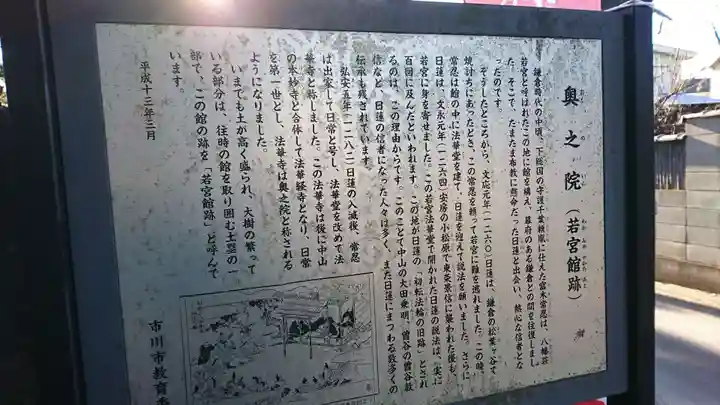 奥之院（若宮館跡）
おく の いん わかみややかたあと
鎌倉時代の中頃、下総国の守護千葉頼胤に仕えた富木常忍は、八幡荘
若宮と呼ばれたこの地に館を構え、幕府のある鎌倉との間を往復しまし
た。そこで、たまたま布教に懸命だった日蓮と出会い、熱心な信者とな
ったのです。
そうしたところから、文応元年（一二六〇）日蓮は、鎌倉の松葉ヶ谷で
焼討ちにあったとき、この常忍を頼って若宮に難を逃れました。この時、
常忍は館の中に法華堂を建て、日蓮を迎えて説法を願いました。さらに
日蓮は、文永元年（一二六四）安房の小松原で東条景信に襲われた後も、
若宮に身を寄せました。この若宮法華堂で開かれた日蓮の説法は、実に
百回に及んだといわれます。この地が日蓮の「初転法輪の旧跡」とされ
るのは、この理由からです。このことで中山の大田乗明、曽谷の曽谷教
信など、日蓮の信者になった人々は多く、また日蓮にまつわる数多くの
伝承も残されています。
弘安五年（一二八二）日蓮の入滅後、常忍
は出家して日常と号し、法華堂を改めて法
華寺と称しました。この法華寺は後に中山
の本妙寺と合体して法華経寺となり、日常
を第一世とし、法華寺は奥之院と称される
ようになりました。
いまでも土が高く盛られ、大樹の繁って
いる部分は、往時の館を取り囲む土塁の一
部で、この館の跡を「若宮館跡」と呼んで
います。
平成十三年三月
市川市教育委